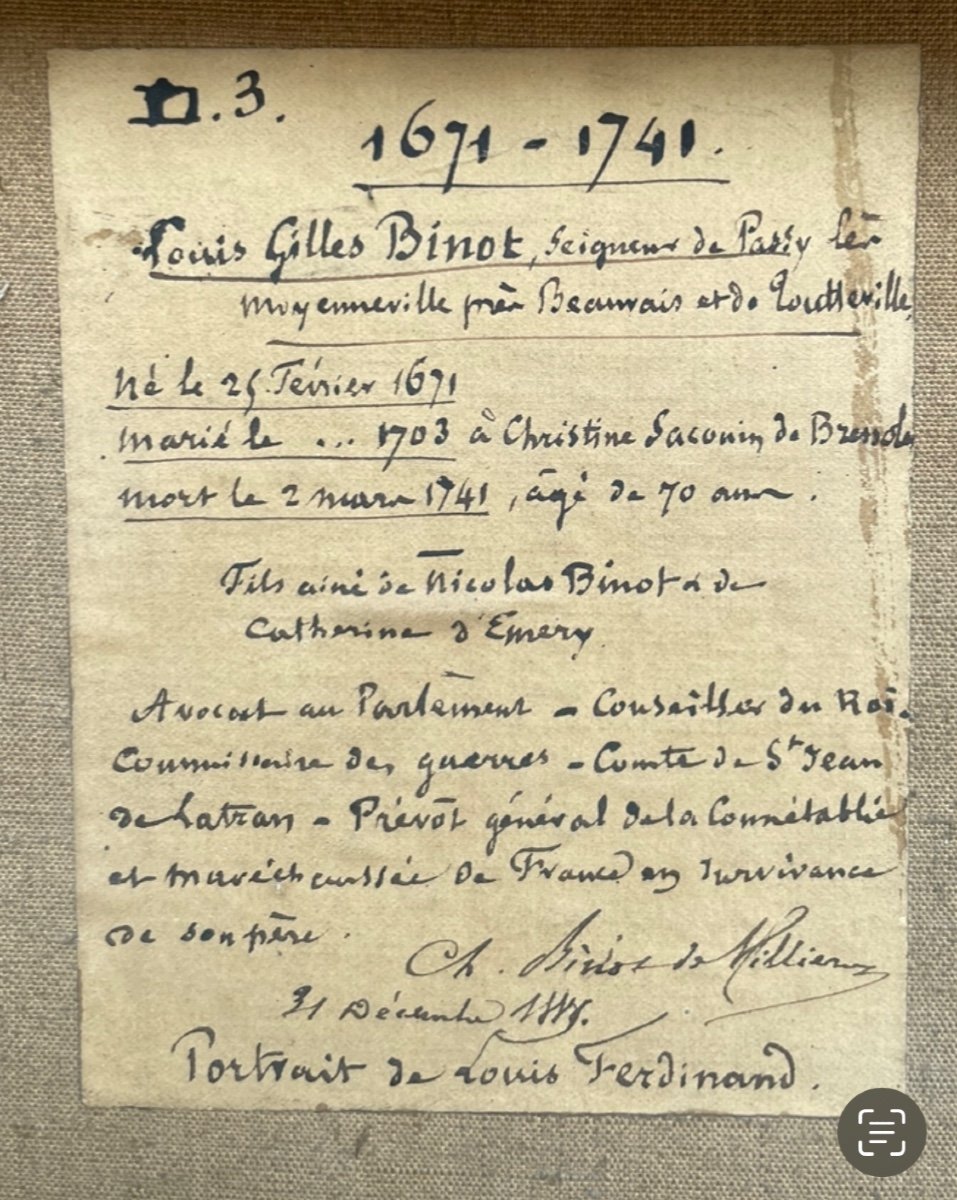 D.3.
1671 - 1741.
Louis Gilles Binot, Seigneur de Passy lès
Moyenneville près Beauvais et de
Né le 25 Février 1671
marié le ... 1703 à Christine de
mort le 2 mars 1741, âgé de 70 ans.
Fils ainé de Nicolas Binot & de
Catherine d'Emery
Avocat au Parlement - Conseiller du Roi -
Commissaire des guerres - Comte de St Jean
de Latran - Prévôt général de la Connétablie
et maréchaussée de France en survivance
de son père.
Ch. Binot de
31 Décembre
Portrait de Louis Ferdinand.